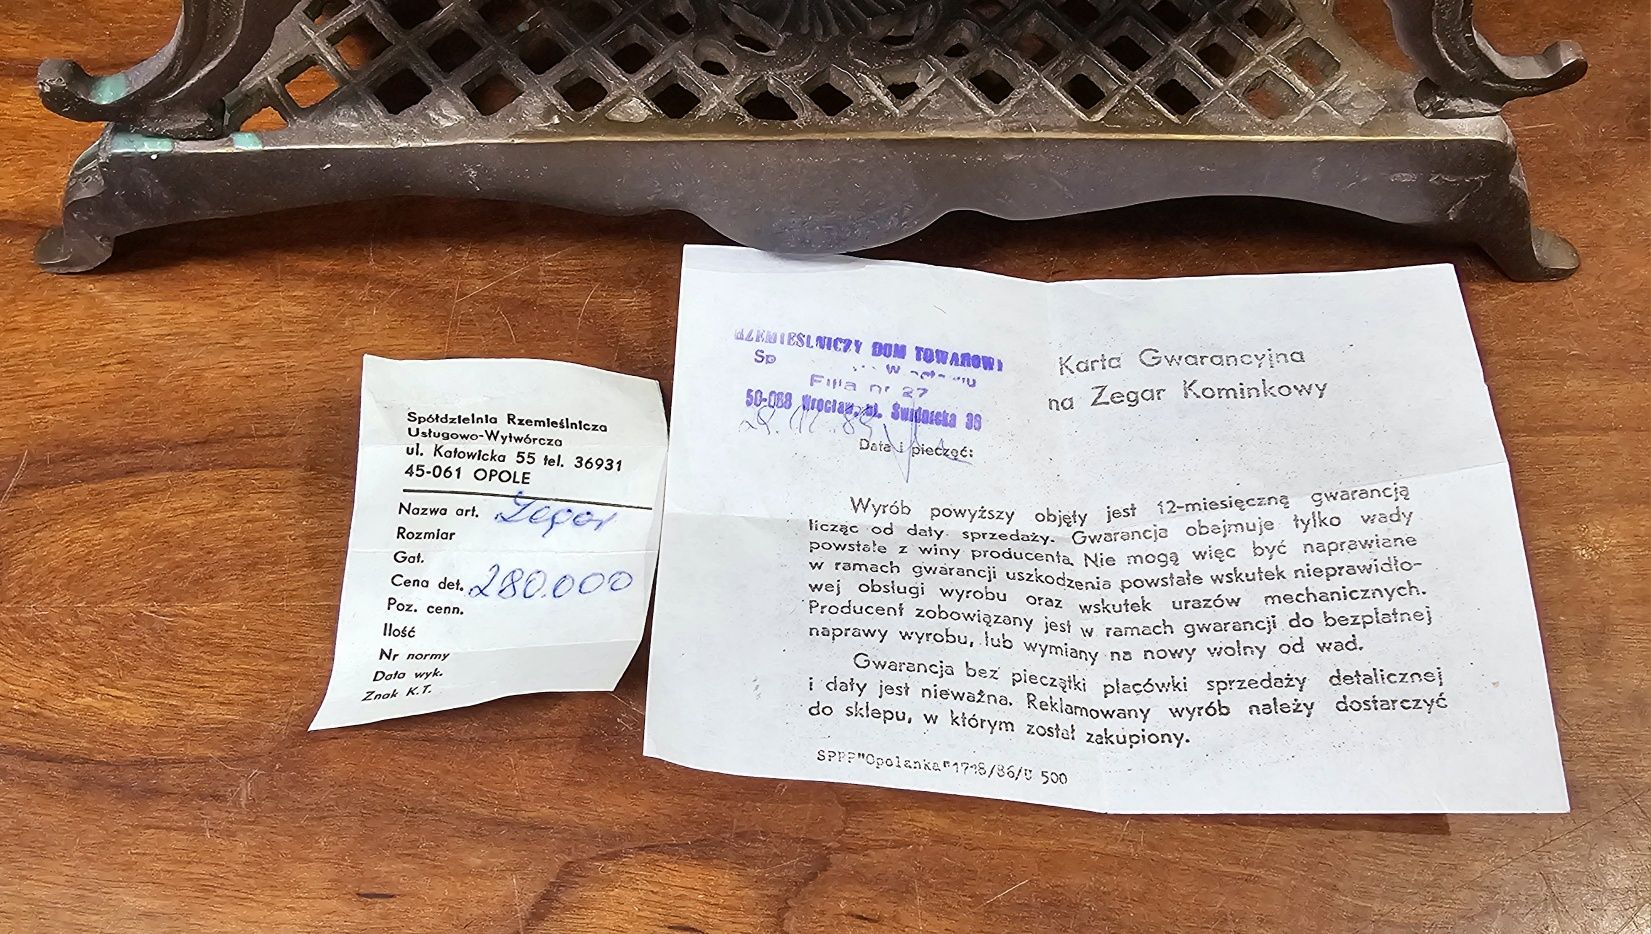 Spółdzielnia Rzemieślnicza
Usługowo-Wytwórcza
ul. Katowicka 55 tel. 36931
45-061 OPOLE
Nazwa art. Zegar
Rozmiar
Gat.
Cena det. 280.000
Poz. cenn.
Ilość
Nr normy
Data wyk.
Znak K.T.
RZEMIEŚLNICZY DOM TOWAROWY
Sp we Wrocławiu
Filia nr 27
50-068 Wrocław, ul. Świdnicka 36
Data i pieczęć:
Karta Gwarancyjna
na Zegar Kominkowy
Wyrób powyższy objęty jest 12-miesięczną gwarancją
licząc od daty sprzedaży. Gwarancja obejmuje tylko wady
powstałe z winy producenta. Nie mogą więc być naprawiane
w ramach gwarancji uszkodzenia powstałe wskutek nieprawidło-
wej obsługi wyrobu oraz wskutek urazów mechanicznych.
Producent zobowiązany jest w ramach gwarancji do bezpłatnej
naprawy wyrobu, lub wymiany na nowy wolny od wad.
Gwarancja bez pieczątki placówki sprzedaży detalicznej
i daty jest nieważna. Reklamowany wyrób należy dostarczyć
do sklepu, w którym został zakupiony.
SPPP"Opolanka"1718/86/U 500